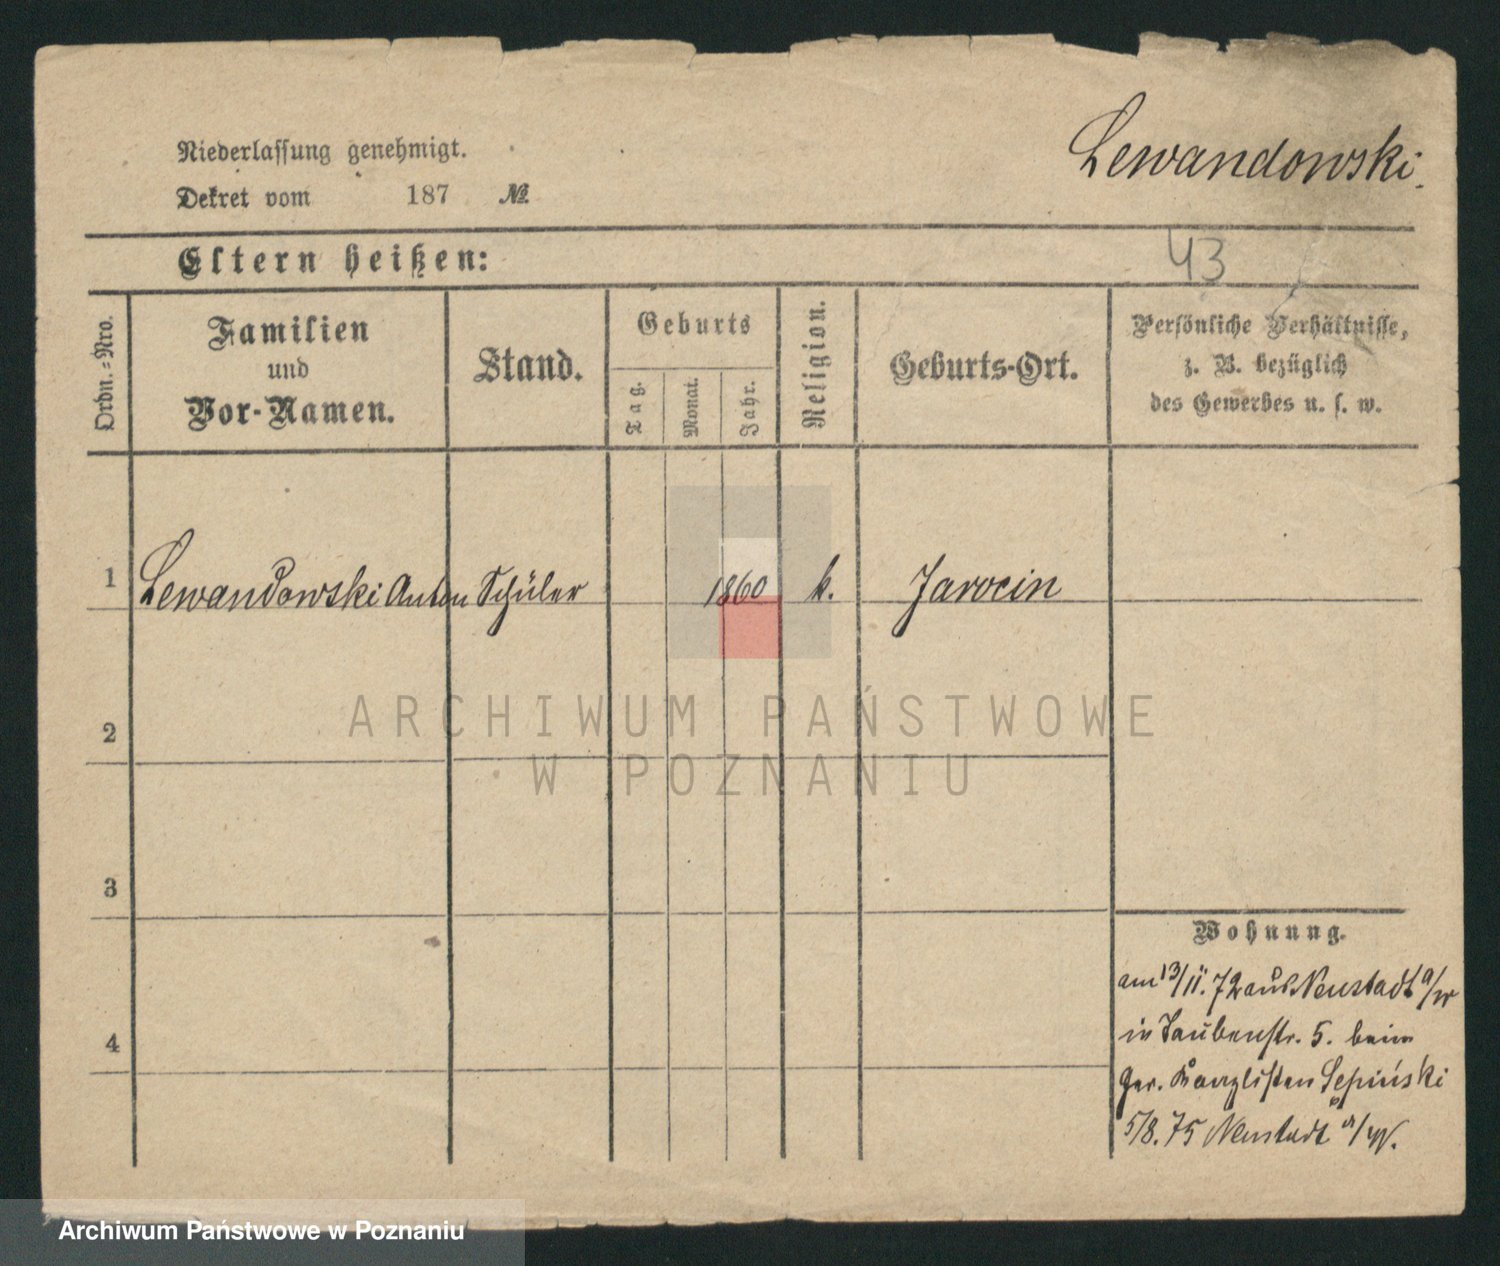 Lewandowski.
Niederlassung genehmigt.
Dekret vom 187 №.
43
Eltern heißen:
Ordn.-Nro.
Familien
und
Vor-Namen.
Stand.
Geburts
Tag.
Monat.
Jahr.
Religion.
Geburts-Ort.
Persönliche Verhältnisse,
z. B. bezüglich
des Gewerbes u. s. w.
1 Lewandowski Anton Schüler 1860 k. Jarocin
2
3
4
Wohnung.
am 13/11. 72 aus Neustadt a/W
in Taubenstr. 5. beim
Ger. Kanzlisten
5/8. 75 Neustadt a/W.
ARCHIWUM PAŃSTWOWE
W POZNANIU
Archiwum Państwowe w Poznaniu